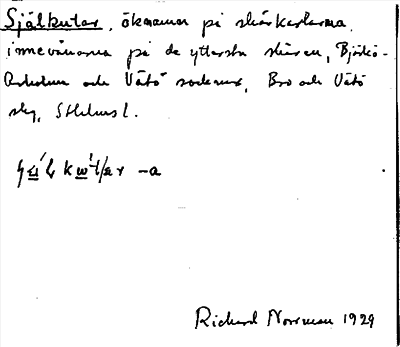 Själkutar, öknamn på skärkarlarna,
innevånarna på de yttersta skären, Björkö-
Arholma och Vätö socknar, Bro och Vätö
skg, Sthlms l.
-a
Richard Norrman 1929